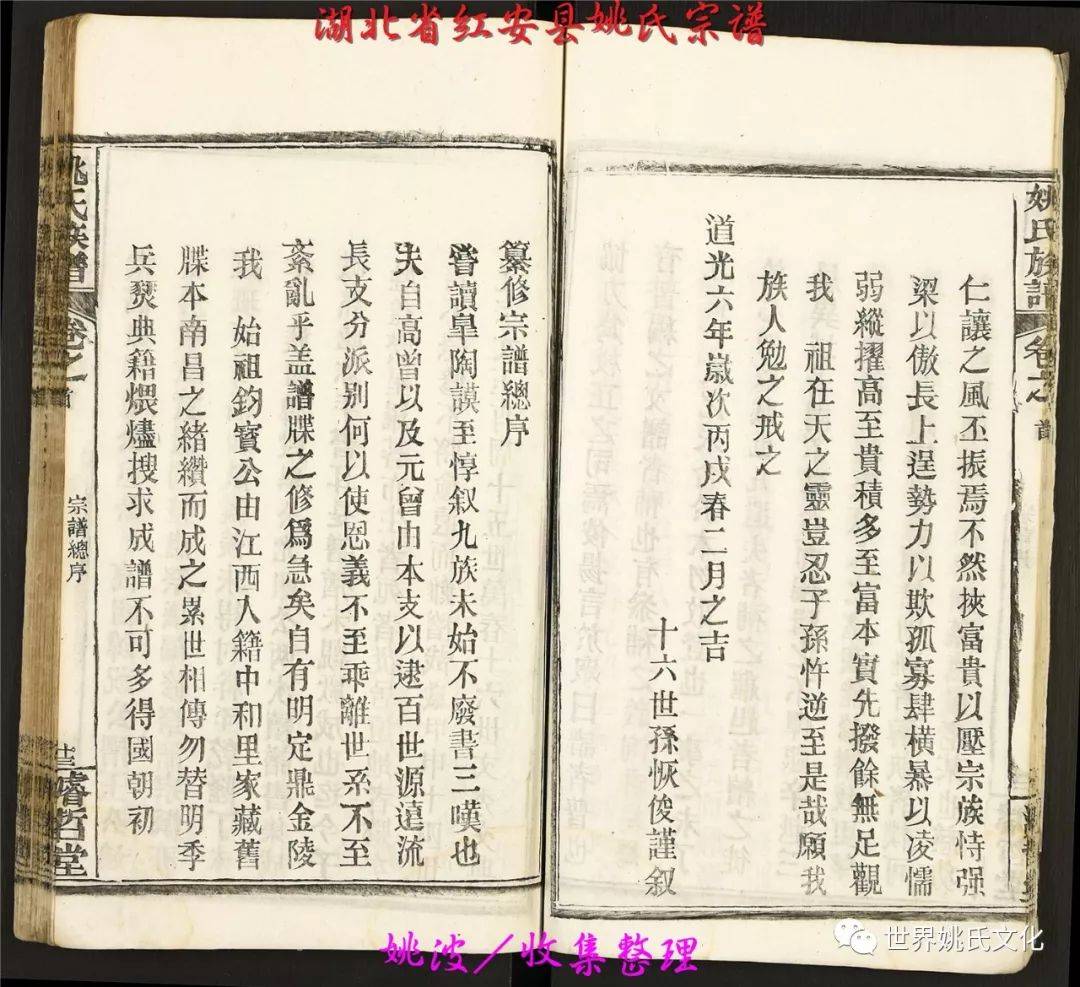 湖北省红安县姚氏宗谱
姚氏族譜
卷之首
仁讓之風丕振焉不然挾富貴以壓宗族恃强
梁以傲長上逞勢力以欺孤寡肆橫暴以凌懦
弱縱擢高至貴積多至富本實先撥餘無足觀
我 祖在天之靈豈忍子孫忤逆至是哉願我
族人勉之戒之
道光六年歲次丙戌春二月之吉
十六世孫恢俊謹叙
纂修宗譜總序
嘗讀皐陶謨至惇叙九族未始不廢書三嘆也
夫自高曾以及元曾由本支以逮百世源遠流
長支分派别何以使恩義不至乖離世系不至
紊亂乎盖譜牒之修爲急矣自有明定鼎金陵
我 始祖鈞寳公由江西入籍中和里家藏舊
牒本南昌之緒纘而成之累世相傳勿替明季
兵燹典籍煨燼搜求成譜不可多得國朝初
姚氏族譜
卷之首
宗譜總序
十三
睿哲堂
姚波/收集整理
世界姚氏文化